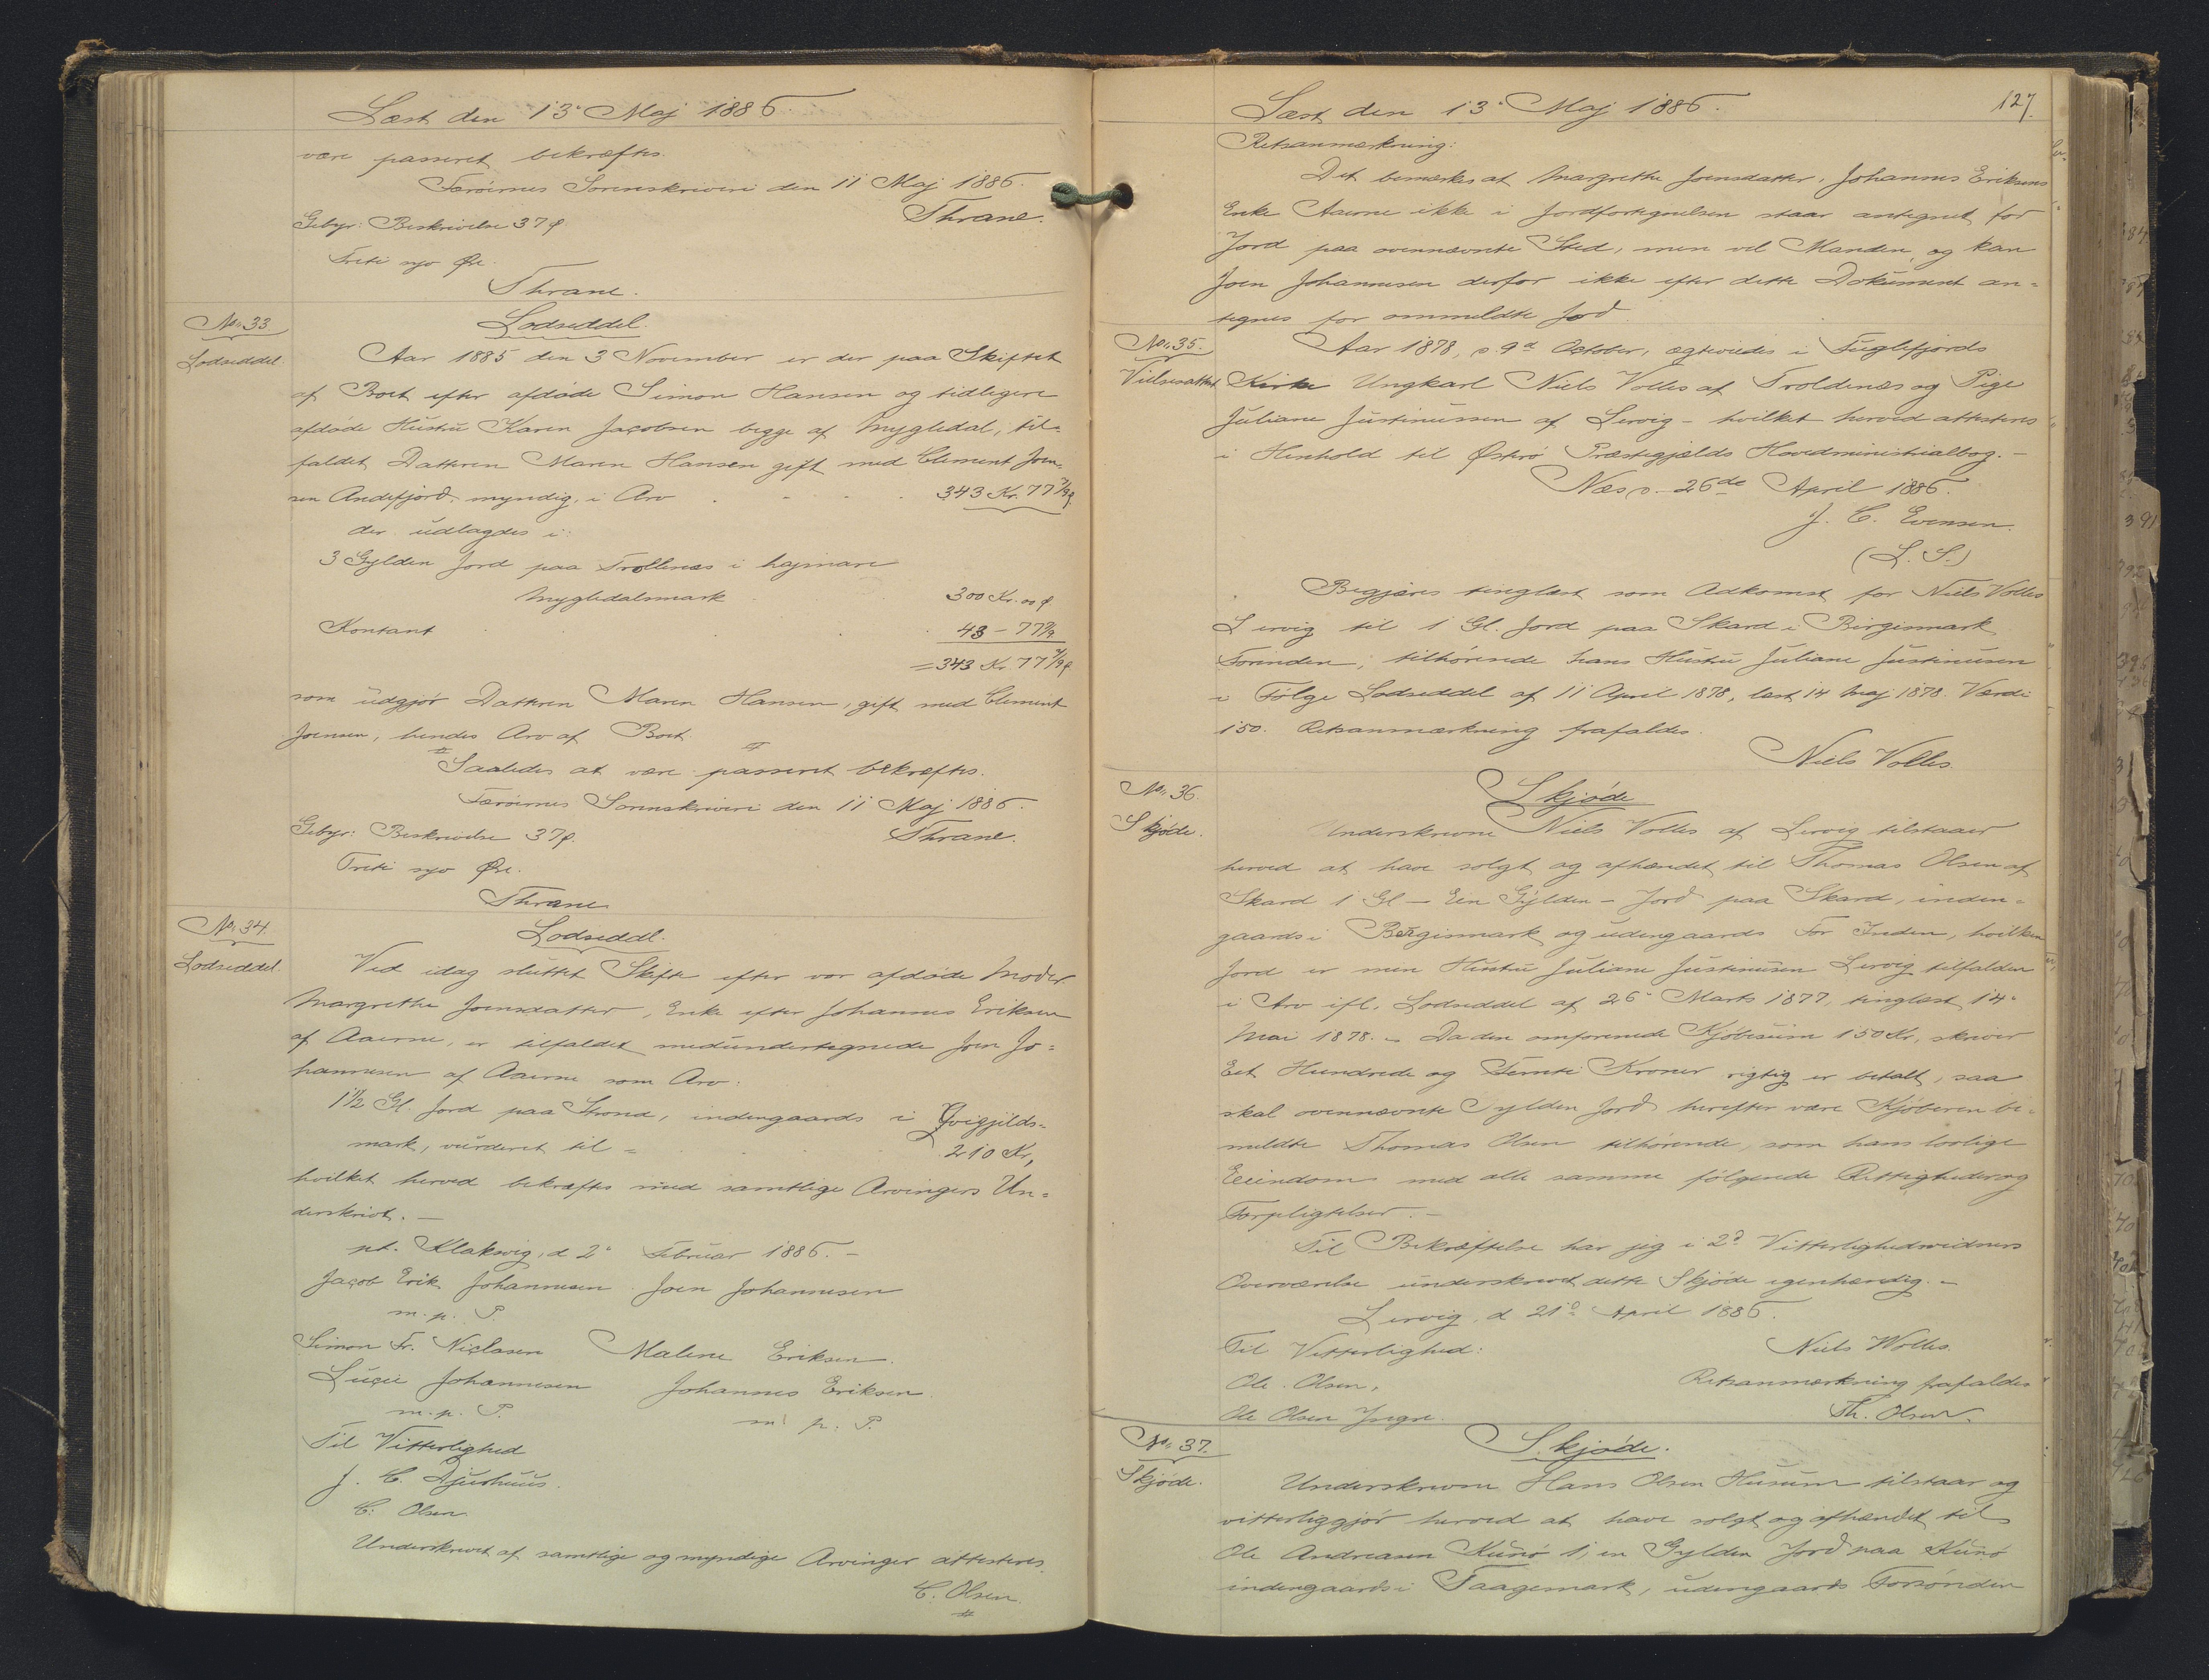 Læst den 13' Maj 1886.
være passeret bekræftes.
Færöernes Sorenskriveri den 11 Maj 1886.
Thrane.
Gebyr: Beskrivelse 37 ø
Treti syv Øre.
Thrane.
No. 33.
Lodseddel.
Lodseddel.
Aar 1885 den 3 November er der paa Skiftet
af Boet efter afdøde Simon Hansen og tidligere
afdøde Hustru Karen Jacobsen begge af Mygledal, til-
faldet Datteren Maren Hansen gift med Clement Joen-
sen Andefjord, myndig, i Arv . - - . 343 Kr. 77 7/9 ø
der udlagdes i:
3 Gylden Jord paa Trollenæs i hajmare
Mygledalsmark 300 Kr. 00 ø
Kontant . . 43 - 77 7/9
= 343 Kr. 77 7/9 ø
som udgjør Datteren Maren Hansen, gift med Clement
Joensen, hendes Arv af Boet.
Saaledes at være passeret bekræftes.
Færöernes Sorenskriveri den 11 Maj 1886.
Gebyr: Beskrivelse 37 ø. Thrane.
Treti syv Øre.
Thrane
No. 34.
Lodseddel.
Lodseddl.
Ved idag sluttet Skifte efter vor afdøde Moder
Margrethe Joensdatter, Enke efter Johannes Eriksen
af Aaerne, er tilfaldet medundertegnede Joen Jo-
hannesen af Aaerne som Arv:
1 1/2 Gl. Jord paa Strond, indengaards i Qvigjilds-
mark, vurderet til = . . 210 Kr,
hvilket herved bekræftes med samtlige Arvingers Un-
derskrivt. —
pt. Klaksvig, d 2' Februar 1886. -
Jacob Erik Johannesen Joen Johannesen
m. p. P.
Simon Fr. Niclasen Malene Eriksen.
Lucie Johannesen Johannes Eriksen.
m. p. P. m. p. P.
Til Vitterlighed
J. C. Djurhuus.
C. Olsen
Underskrevet af samtlige og myndige Arvinger attesteres.
C. Olsen
Læst den 13' Maj 1886. 127.
Retsanmærkning:
Det bemærkes at Margrethe Joensdatter, Johannes Eriksens
Enke Aaerne ikke i Jordfortegnelsen staar antegnet for
Jord paa ovennævnte Sted, men vel Manden, og kan
Joen Johannesen derfor ikke efter dette Dokument an-
tegnes for ommeldte Jord.
No. 35.
Vielsesattest
Aar 1878, d. 9de October, ægteviedes i Fuglefjords
Kirke Ungkarl Niels Volles af Troldenæs og Pige
Juliane Justinussen af Lervig - hvilket herved attesteres
i Henhold til Østerø Præstegjælds Hovedministrialbog. -
Næs, d. 26de April 1886.
J. C. Evensen.
(L. S.)
Begjæres tinglæst som Adkomst for Niels Volles
Lervig til 1 Gl. Jord paa Skard i Birgismark
Forinden, tilhørende hans Hustru Juliane Justinusen
i Følge Lodseddel af 11 April 1878, læst 14 Maj 1878. Værdi
150. Retsanmærkning frafaldes.
Niels Volles.
No. 36.
Skjøde.
Skjøde
Underskrevne Niels Volles af Lervig tilstaaer
herved at have solgt og afhændet til Thomas Olsen af
Skard 1 Gl — Een Gylden - Jord paa Skard, inden-
gaards i Berginmark og udengaards For Inden, hvilken
Jord er min Hustru Juliane Justinusen Lervig tilfalden
i Arv ifl. Lodseddel af 26' Marts 1877, tinglæst 14'
Mai 1878. - Da den omforenede Kjøbesum 150 Kr, skriver
Eet Hundrede og Femti Kroner rigtig er betalt, saa
skal ovennævnte Gylden Jord herefter være Kjøberen be-
meldte Thomas Olsen tilhørende, som hans lovlige
Eeiendom med alle samme følgende Rettigheder og
Forpligtelser. —
Til Bekræftelse har jeg i 2de Vitterlighedsvidners
Overværelse underskrevet dette Skjøde egenhændig. -
Lervig, d 21de April 1886.
Til Vitterlighed: Niels Wolles.
Ole Olsen, Retsanmærkning frafaldes
Ole Olsen Yngre. Th. Olsen.
No. 37.
Skjøde.
Skjøde.
Underskrevne Hans Olsen Husum tilstaar og
vitterliggjør herved at have solgt og afhændet til
Ole Andreasen Kunø 1, en Gylden Jord paa Kunø
indengaards i Taagemark, udengaards Forsönden